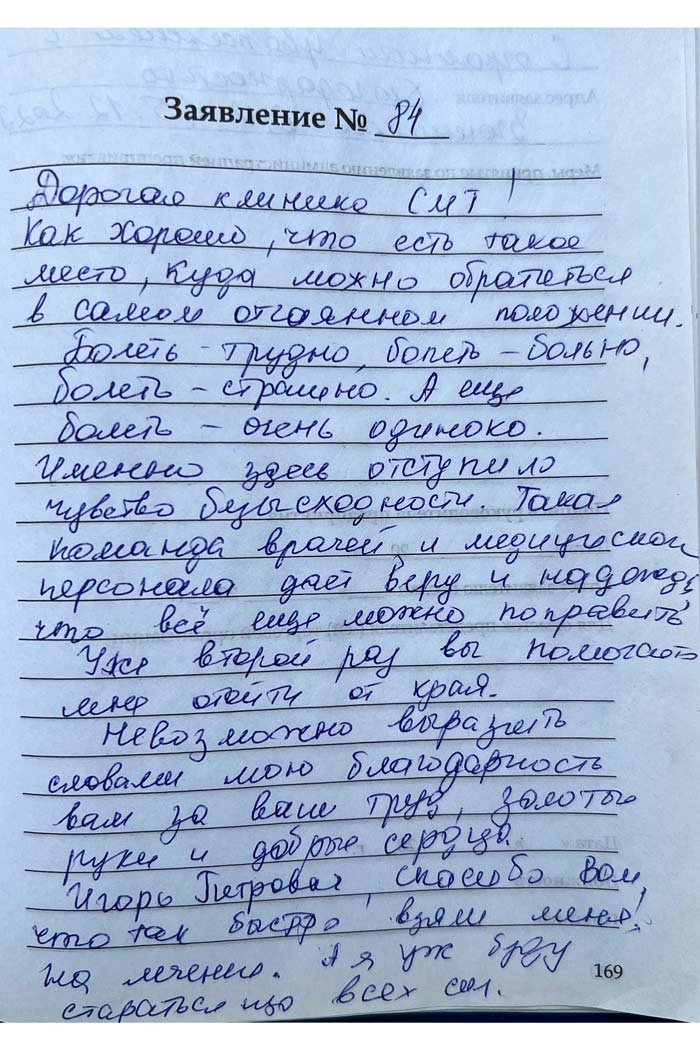 Заявление № 84
Дорогая клиника СМТ!
Как хорошо, что есть такое
место, куда можно обратиться
в самом отчаянном положении.
Болеть - трудно, болеть - больно,
болеть - страшно. А еще
болеть - очень одиноко.
Именно здесь отступило
чувство безысходности. Такая
команда врачей и медицинского
персонала даёт веру и надежду,
что всё еще можно поправить
Уже второй раз вы помогаете
мне отойти от края.
Невозможно выразить
словами мою благодарность
вам за ваш труд, золотые
руки и добрые сердца.
Игорь Петрович, спасибо Вам,
что так быстро взяли меня
на лечение. А я уж буду
стараться изо всех сил.
169